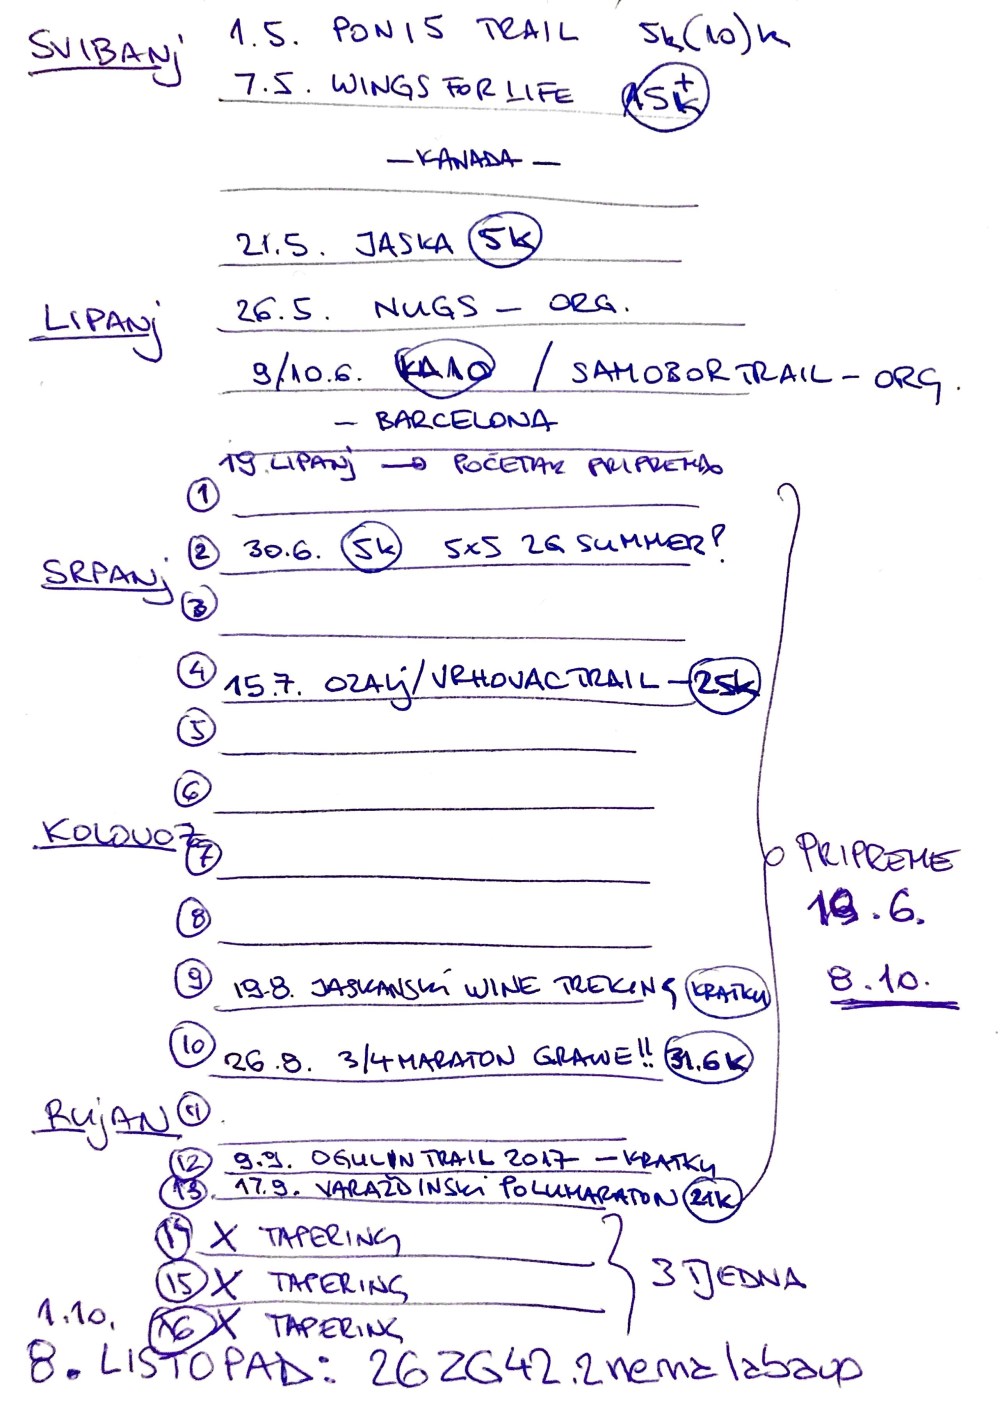 SVIBANJ 1.5. PONIS TRAIL 5k(10)k
7.5. WINGS FOR LIFE 15k+
— KANADA —
21.5. JASKA 5k
LIPANJ 26.5. NUGS — ORG.
9/10.6. KA10 / SAMOBOR TRAIL — ORG.
— BARCELONA
19. LIPANJ → POČETAK PRIPREMA
1
2 30.6. 5k 5x5 ZG SUMMER?
SRPANJ
3
4 15.7. OZALJ/VRHOVAC TRAIL — 25k
5
6
KOLOVOZ
7
PRIPREME
19.6.
8
8.10.
9 19.8. JASKANSKI WINE TREKING KRATKU
10 26.8. 3/4 MARATON GRAWE!! 31.6K
RUJAN 11
12 9.9. OGULIN TRAIL 2017 — KRATKU
13. 17.9. VARAŽDINSKI POLUMARATON 21K
14 X TAPERING
15 X TAPERING 3 TJEDNA
1.10. 16 X TAPERING
8. LISTOPAD: 26 ZG42.2 nema labavo